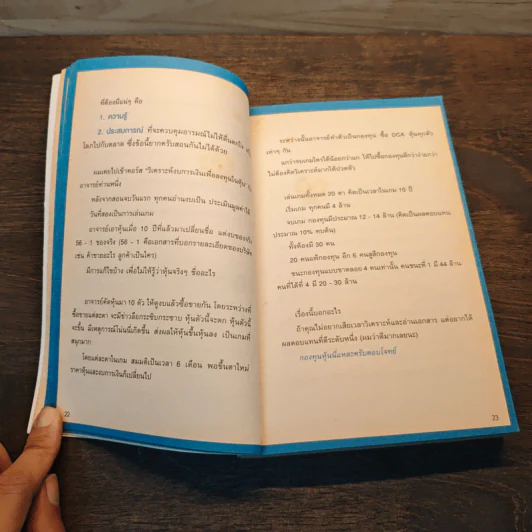 ที่ต้องมีแน่ๆ คือ
1. ความรู้
2. ประสบการณ์ ที่จะควบคุมอารมณ์ไม่ให้ตื่นตกใจ
โลกไปกับตลาด ซึ่งข้อนี้ยากครับสอนกันไม่ได้ด้วย
ผมเคยไปเข้าคอร์ส "วิเคราะห์งบการเงินเพื่อลงทุนในหุ้น"
อาจารย์ท่านหนึ่ง
หลังจากสอนจบวันแรก ทุกคนอ่านงบเป็น ประเมินมูลค่าได้
วันที่สองเป็นการเล่นเกม
อาจารย์เอาหุ้นเมื่อ 10 ปีที่แล้วมาเปลี่ยนชื่อ แต่งบของจริง
56 - 1 ของจริง (56 - 1 คือเอกสารที่บอกรายละเอียดของบริษัท
เช่น ค้าขายอะไร ลูกค้าเป็นใคร)
มีการแก้ไขบ้าง เพื่อไม่ให้รู้ว่าหุ้นจริงๆ ชื่ออะไร
อาจารย์คัดหุ้นมา 10 ตัว ให้ดูงบแล้วซื้อขายกัน โดยระหว่างที่
ซื้อขายแต่ละตา จะมีข่าวลือกระซิบกระซาบ หุ้นตัวนี้จะตก หุ้นตัวนี้
จะขึ้น มีเหตุการณ์โน่นนี่เกิดขึ้น ส่งผลให้หุ้นขึ้นหุ้นลง เป็นเกมที่
สนุกมาก
โดยแต่ละตาในเกม สมมติเป็นเวลา 6 เดือน พอขึ้นตาใหม่
ราคาหุ้นและงบการเงินก็เปลี่ยนไป
22
ระหว่างนั้นอาจารย์ทำตัวเป็นกองทุน ซื้อ DCA หุ้นทุกตัว
เท่าๆ กัน
ไม่ต้องคิดวิเคราะห์มากให้ปวดหัว
เล่นเกมทั้งหมด 20 ตา คิดเป็นเวลาในเกม 10 ปี
เริ่มเกม ทุกคนมี 4 ล้าน
จบเกม กองทุนมีประมาณ 12 - 14 ล้าน (คิดเป็นผลตอบแทน
ประมาณ 10% ทบต้น)
ทั้งห้องมี 30 คน
20 คนแพ้กองทุน อีก 6 คนสูสีกองทุน
ชนะกองทุนแบบขาดลอย 4 คนเท่านั้น คนชนะที่ 1 มี 44 ล้าน
คนที่ได้ที่ 4 มี 29 - 30 ล้าน
เรื่องนี้บอกอะไร
ถ้าคุณไม่อยากเสียเวลาวิเคราะห์และอ่านเอกสาร แต่อยากได้
ผลตอบแทนที่ดีระดับหนึ่ง (ผมว่าดีมากเลยนะ)
กองทุนหุ้นนี่แหละครับตอบโจทย์
23